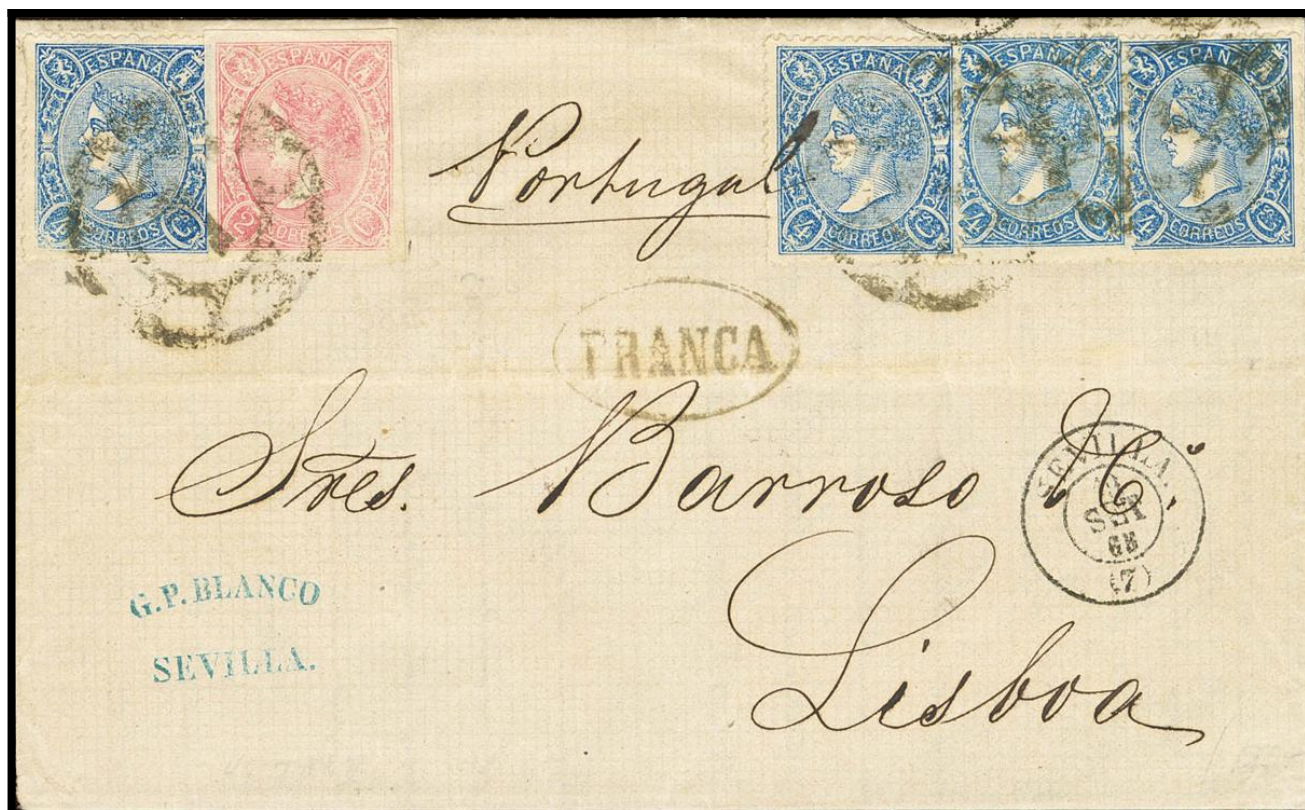 ESPAÑA
4 CORREOS Cs
ESPAÑA
2 CORREOS Cs
ESPAÑA
4 CORREOS Cs
ESPAÑA
4 CORREOS Cs
ESPAÑA
4 CORREOS Cs
Portugal
FRANCA
Sres. Barroso
SEVILLA.
SET
(7)
G.P. BLANCO
SEVILLA.
Lisboa